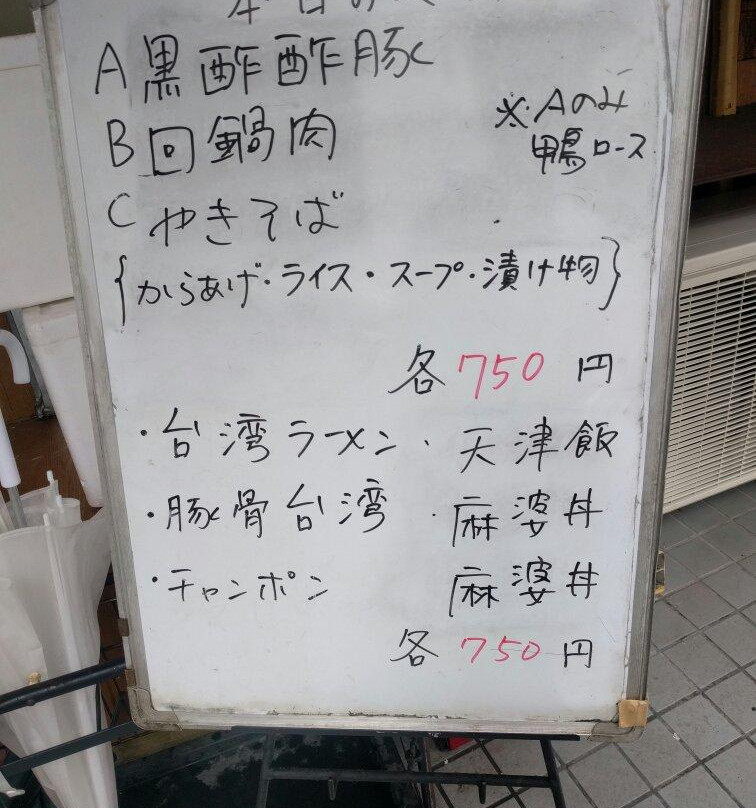 本日の
A 黒酢酢豚
※Aのみ
鴨ロース
B 回鍋肉
C やきそば
{からあげ・ライス・スープ・漬け物}
各750円
・台湾ラーメン・天津飯
・豚骨台湾・麻婆丼
・チャンポン 麻婆丼
各750円